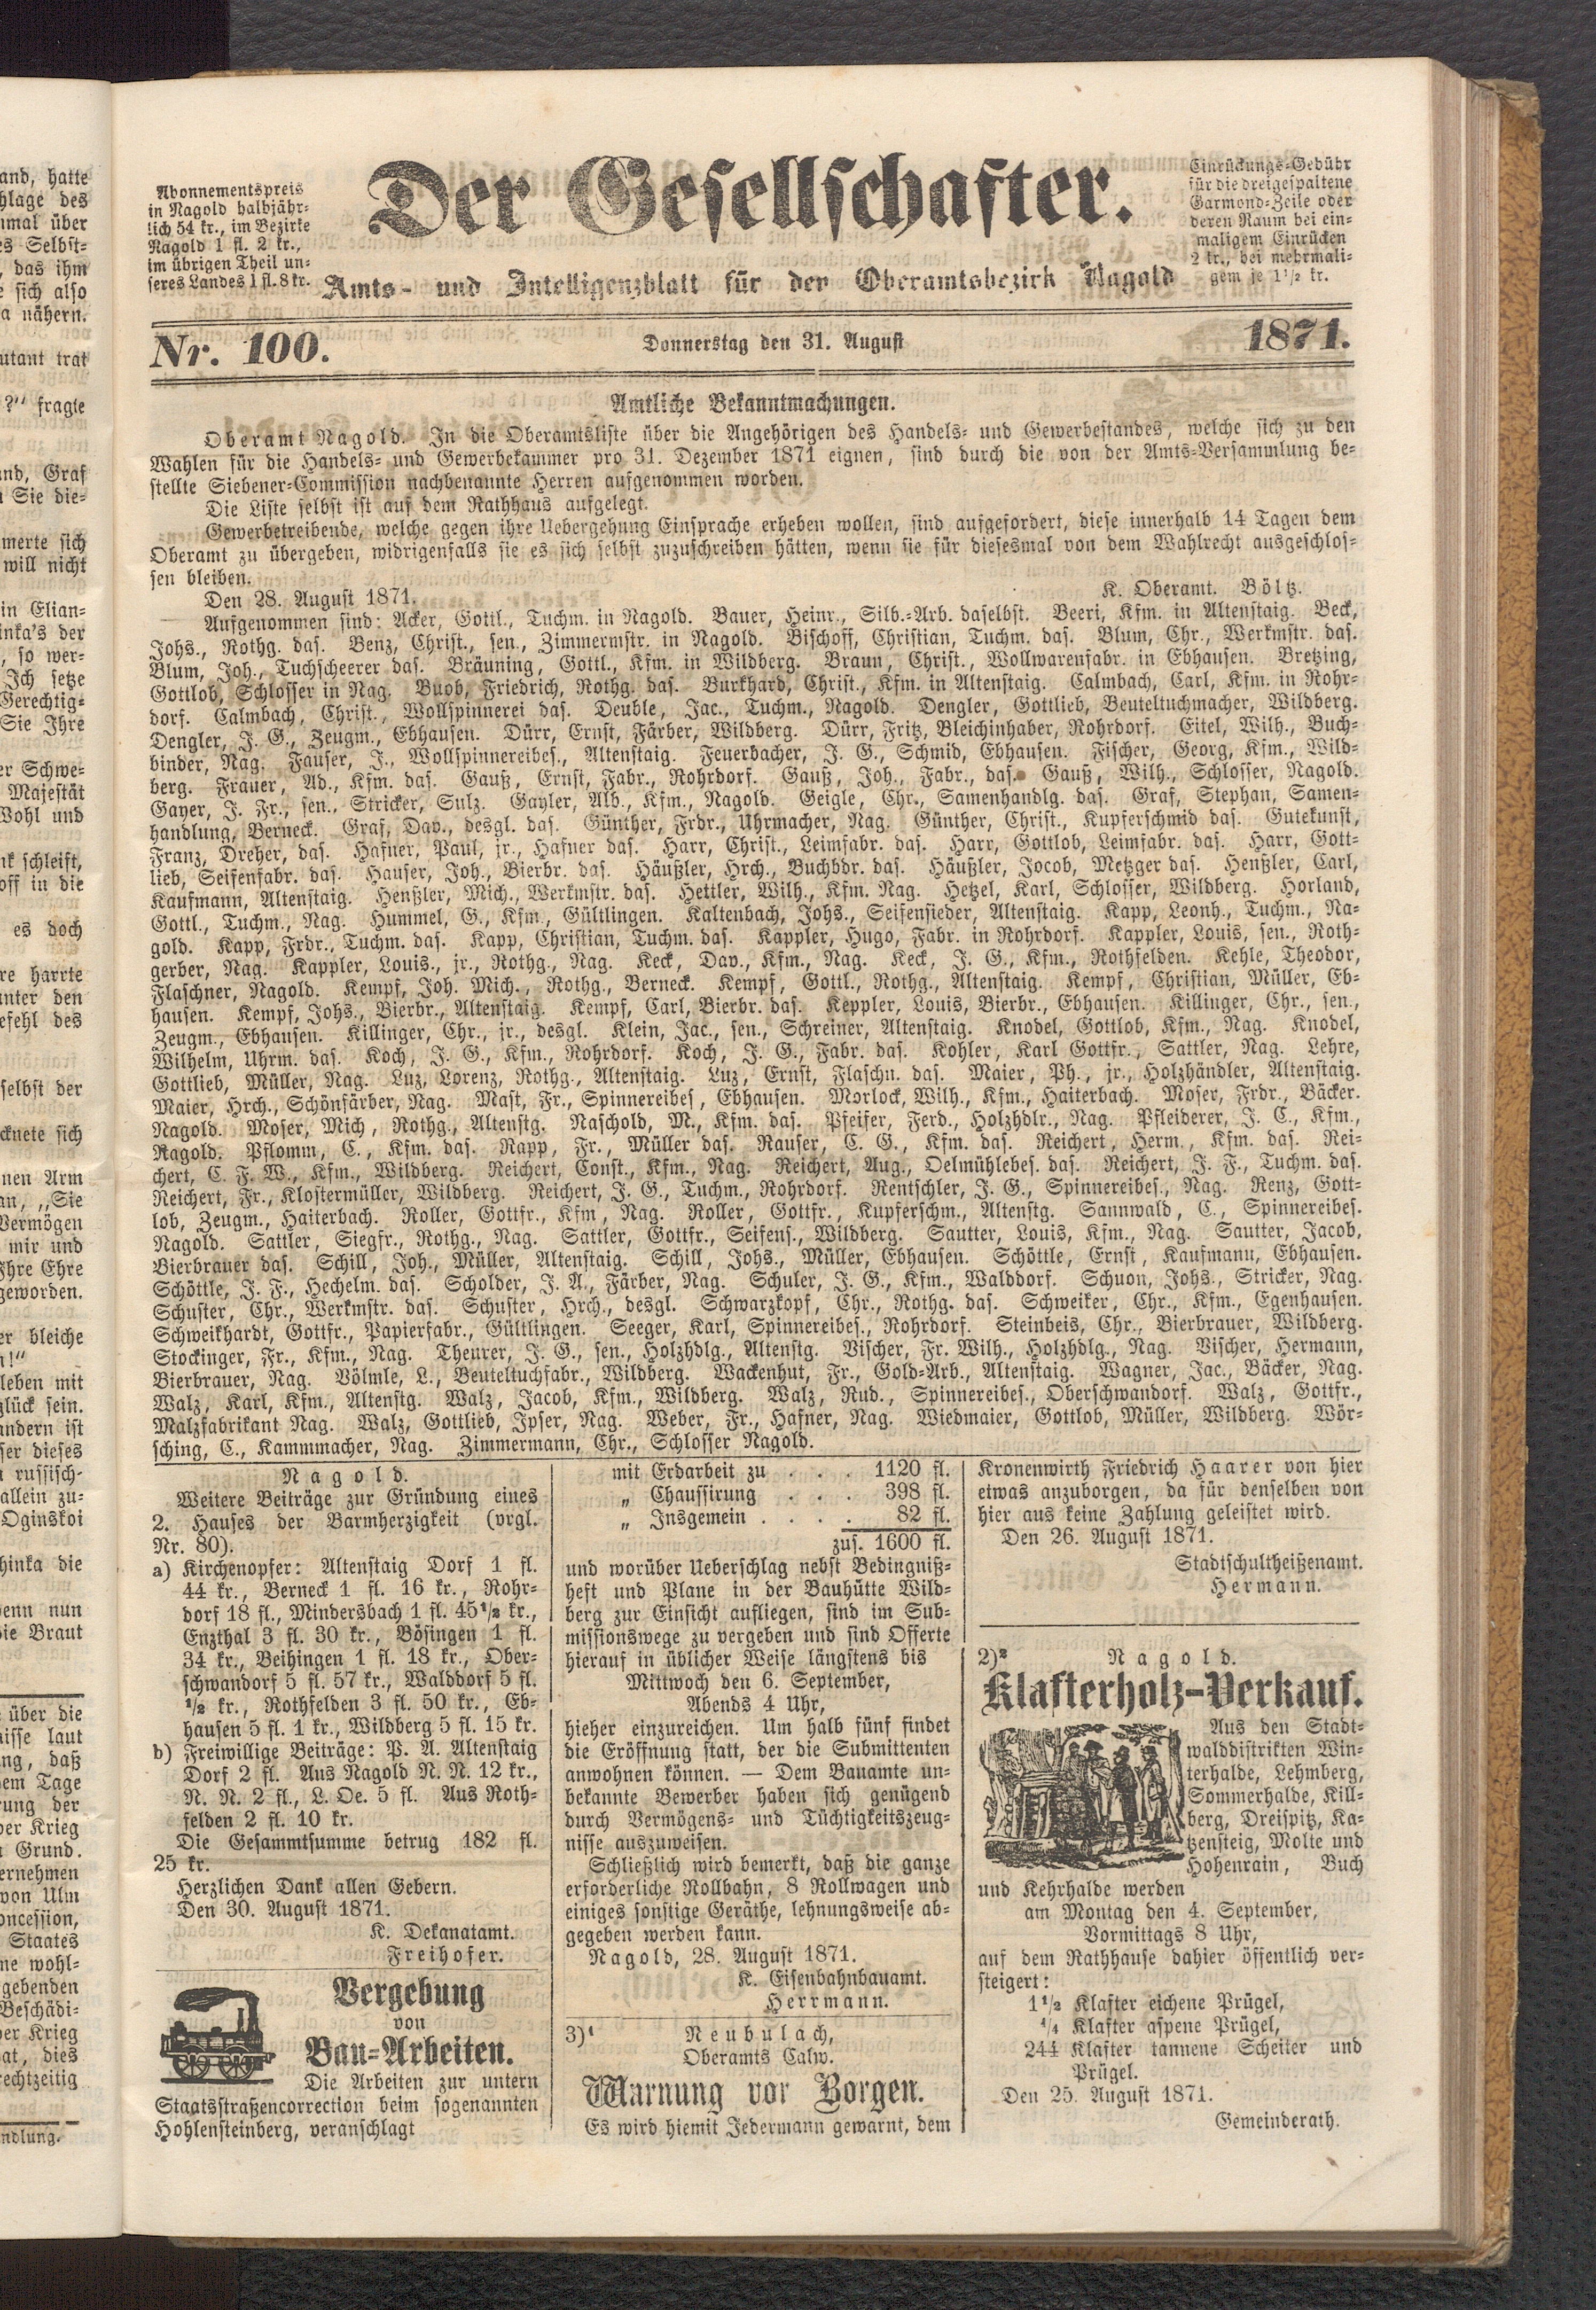 and, hatte
hlage des
nmal über
es Selbst-
, das ihm
e sich also
a nähern.
utant trat
?" fragte
and, Graf
n Sie die-
merte sich
will nicht
in Elian-
inka's der
, so wer-
Ich setze
Gerechtig-
Sie Ihre
er Schwe-
Majestät
Wohl und
nk schleift,
off in die
es doch
re harrte
unter den
efehl des
selbst der
cknete sich
nen Arm
an, „Sie
Vermögen
mir und
Ihre Ehre
geworden.
er bleiche
n!"
leben mit
glück sein.
andern ist
ser dieses
n russisch-
allein zu-
Oginskoi
hinka die
venn nun
die Braut
über die
nisse laut
ng, daß
nem Tage
rung der
der Krieg
n Grund.
ernehmen
von Ulm
oncession,
Staates
ne wohl-
gebenden
Beschädi-
der Krieg
at, dies
rechtzeitig
ndlung.
Abonnementspreis
in Nagold halbjähr-
lich 54 kr., im Bezirke
Nagold 1 fl. 2 kr.,
im übrigen Theil un-
seres Landes 1 fl. 8 kr.
Der Gesellschafter.
Amts- und Intelligenzblatt für den Oberamtsbezirk Nagold
Einrückungs-Gebühr
für die dreigespaltene
Garmond-Zeile oder
deren Raum bei ein-
maligem Einrücken
2 kr., bei mehrmali-
gem je 1½ kr.
Nr. 100.
Donnerstag den 31. August
1871.
Amtliche Bekanntmachungen.
Oberamt Nagold. In die Oberamtsliste über die Angehörigen des Handels- und Gewerbestandes, welche sich zu den
Wahlen für die Handels- und Gewerbekammer pro 31. Dezember 1871 eignen, sind durch die von der Amts-Versammlung be-
stellte Siebener-Commission nachbenannte Herren aufgenommen worden.
Die Liste selbst ist auf dem Rathhaus aufgelegt.
Gewerbetreibende, welche gegen ihre Uebergehung Einsprache erheben wollen, sind aufgefordert, diese innerhalb 14 Tagen dem
Oberamt zu übergeben, widrigenfalls sie es sich selbst zuzuschreiben hätten, wenn sie für diesesmal von dem Wahlrecht ausgeschlos-
sen bleiben.
Den 28. August 1871.
K. Oberamt. Böltz.
Aufgenommen sind: Acker, Gottl., Tuchm. in Nagold. Bauer, Heinr., Silb.-Arb. daselbst. Beeri, Kfm. in Altenstaig. Beck,
Johs., Rothg. das. Benz, Christ., sen., Zimmermstr. in Nagold. Bischoff, Christian, Tuchm. das. Blum, Chr., Werkmstr. das.
Blum, Joh., Tuchscheerer das. Bräuning, Gottl., Kfm. in Wildberg. Braun, Christ., Wollwarenfabr. in Ebhausen. Bretzing,
Gottlob, Schlosser in Nag. Buob, Friedrich, Rothg. das. Burkhard, Christ., Kfm. in Altenstaig. Calmbach, Carl, Kfm. in Rohr-
dorf. Calmbach, Christ., Wollspinnerei das. Deuble, Jac., Tuchm., Nagold. Dengler, Gottlieb, Beuteltuchmacher, Wildberg.
Dengler, J. G., Zeugm., Ebhausen. Dürr, Ernst, Färber, Wildberg. Dürr, Fritz, Bleichinhaber, Rohrdorf. Eitel, Wilh., Buch-
binder, Nag. Fauser, J., Wollspinnereibes., Altenstaig. Feuerbacher, J. G., Schmid, Ebhausen. Fischer, Georg, Kfm., Wild-
berg. Frauer, Ad., Kfm. das. Gauß, Ernst, Fabr., Rohrdorf. Gauß, Joh., Fabr., das. Gauß, Wilh., Schlosser, Nagold.
Gayer, J. Fr., sen., Stricker, Sulz. Gayler, Alb., Kfm., Nagold. Geigle, Chr., Samenhandlg. das. Graf, Stephan, Samen-
handlung, Berneck. Graf, Dav., desgl. das. Günther, Frdr., Uhrmacher, Nag. Günther, Christ., Kupferschmid das. Gutekunst,
Franz, Dreher, das. Hafner, Paul, jr., Hafner das. Harr, Christ., Leimfabr. das. Harr, Gottlob, Leimfabr. das. Harr, Gott-
lieb, Seifenfabr. das. Hauser, Joh., Bierbr. das. Häußler, Hrch., Buchbdr. das. Häußler, Jocob, Metzger das. Henßler, Carl,
Kaufmann, Altenstaig. Henßler, Mich., Werkmstr. das. Hettler, Wilh., Kfm. Nag. Hetzel, Karl, Schlosser, Wildberg. Horland,
Gottl., Tuchm., Nag. Hummel, G., Kfm., Gültlingen. Kaltenbach, Johs., Seifensieder, Altenstaig. Kapp, Leonh., Tuchm., Na-
gold. Kapp, Frdr., Tuchm. das. Kapp, Christian, Tuchm. das. Kappler, Hugo, Fabr. in Rohrdorf. Kappler, Louis, sen., Roth-
gerber, Nag. Kappler, Louis., jr., Rothg., Nag. Keck, Dav., Kfm., Nag. Keck, J. G., Kfm., Rothfelden. Kehle, Theodor,
Flaschner, Nagold. Kempf, Joh. Mich., Rothg., Berneck. Kempf, Gottl., Rothg., Altenstaig. Kempf, Christian, Müller, Eb-
hausen. Kempf, Johs., Bierbr., Altenstaig. Kempf, Carl, Bierbr. das. Keppler, Louis, Bierbr., Ebhausen. Killinger, Chr., sen.,
Zeugm., Ebhausen. Killinger, Chr., jr., desgl. Klein, Jac., sen., Schreiner, Altenstaig. Knodel, Gottlob, Kfm., Nag. Knodel,
Wilhelm, Uhrm. das. Koch, J. G., Kfm., Rohrdorf. Koch, J. G., Fabr. das. Kohler, Karl Gottfr., Sattler, Nag. Lehre,
Gottlieb, Müller, Nag. Luz, Lorenz, Rothg., Altenstaig. Luz, Ernst, Flaschn. das. Maier, Ph., jr., Holzhändler, Altenstaig.
Maier, Hrch., Schönfärber, Nag. Mast, Fr., Spinnereibes, Ebhausen. Morlock, Wilh., Kfm., Haiterbach. Moser, Frdr., Bäcker.
Nagold. Moser, Mich, Rothg., Altenstg. Naschold, M., Kfm. das. Pfeifer, Ferd., Holzhdlr., Nag. Pfleiderer, J. C., Kfm.,
Nagold. Pflomm, C., Kfm. das. Rapp, Fr., Müller das. Rauser, C. G., Kfm. das. Reichert, Herm., Kfm. das. Rei-
chert, C. F. W., Kfm., Wildberg. Reichert, Const., Kfm., Nag. Reichert, Aug., Oelmühlebes. das. Reichert, J. F., Tuchm. das.
Reichert, Fr., Klostermüller, Wildberg. Reichert, J. G., Tuchm., Rohrdorf. Rentschler, J. G., Spinnereibes., Nag. Renz, Gott-
lob, Zeugm., Haiterbach. Roller, Gottfr., Kfm, Nag. Roller, Gottfr., Kupferschm., Altenstg. Sannwald, C., Spinnereibes.
Nagold. Sattler, Siegfr., Rothg., Nag. Sattler, Gottfr., Seifens., Wildberg. Sautter, Louis, Kfm., Nag. Sautter, Jacob,
Bierbrauer das. Schill, Joh., Müller, Altenstaig. Schill, Johs., Müller, Ebhausen. Schöttle, Ernst, Kaufmann, Ebhausen.
Schöttle, J. F., Hechelm. das. Scholder, J. A., Färber, Nag. Schuler, J. G., Kfm., Walddorf. Schuon, Johs., Stricker, Nag.
Schuster, Chr., Werkmstr. das. Schuster, Hrch., desgl. Schwarzkopf, Chr., Rothg. das. Schweiker, Chr., Kfm., Egenhausen.
Schweikhardt, Gottfr., Papierfabr., Gültlingen. Seeger, Karl, Spinnereibes., Rohrdorf. Steinbeis, Chr., Bierbrauer, Wildberg.
Stockinger, Fr., Kfm., Nag. Theurer, J. G., sen., Holzhdlg., Altenstg. Vischer, Fr. Wilh., Holzhdlg., Nag. Vischer, Hermann,
Bierbrauer, Nag. Völmle, L., Beuteltuchfabr., Wildberg. Wackenhut, Fr., Gold-Arb., Altenstaig. Wagner, Jac., Bäcker, Nag.
Walz, Karl, Kfm., Altenstg. Walz, Jacob, Kfm., Wildberg. Walz, Rud., Spinnereibes., Oberschwandorf. Walz, Gottfr.,
Malzfabrikant Nag. Walz, Gottlieb, Ipser, Nag. Weber, Fr., Hafner, Nag. Wiedmaier, Gottlob, Müller, Wildberg. Wör-
sching, C., Kammmacher, Nag. Zimmermann, Chr., Schlosser Nagold.
Nagold.
Weitere Beiträge zur Gründung eines
2. Hauses der Barmherzigkeit (vrgl.
Nr. 80).
a) Kirchenopfer: Altenstaig Dorf 1 fl.
44 kr., Berneck 1 fl. 16 kr., Rohr-
dorf 18 fl., Mindersbach 1 fl. 45½ kr.,
Enzthal 3 fl. 30 kr., Bösingen 1 fl.
34 kr., Beihingen 1 fl. 18 kr., Ober-
schwandorf 5 fl. 57 kr., Walddorf 5 fl.
½ kr., Rothfelden 3 fl. 50 kr., Eb-
hausen 5 fl. 1 kr., Wildberg 5 fl. 15 kr.
b) Freiwillige Beiträge: P. A. Altenstaig
Dorf 2 fl. Aus Nagold N. N. 12 kr.,
N. N. 2 fl., L. Oe. 5 fl. Aus Roth-
felden 2 fl. 10 kr.
Die Gesammtsumme betrug 182 fl.
25 kr.
Herzlichen Dank allen Gebern.
Den 30. August 1871.
K. Dekanatamt.
Freihofer.
Vergebung
von
Bau-Arbeiten.
Die Arbeiten zur untern
Staatsstraßencorrection beim sogenannten
Hohlensteinberg, veranschlagt
mit Erdarbeit zu . . . 1120 fl.
„ Chaussirung . . . 398 fl.
„ Insgemein . . . . 82 fl.
zus. 1600 fl.
und worüber Ueberschlag nebst Bedingniß-
heft und Plane in der Bauhütte Wild-
berg zur Einsicht aufliegen, sind im Sub-
missionswege zu vergeben und sind Offerte
hierauf in üblicher Weise längstens bis
Mittwoch den 6. September,
Abends 4 Uhr,
hieher einzureichen. Um halb fünf findet
die Eröffnung statt, der die Submittenten
anwohnen können. — Dem Bauamte un-
bekannte Bewerber haben sich genügend
durch Vermögens- und Tüchtigkeitszeug-
nisse auszuweisen.
Schließlich wird bemerkt, daß die ganze
erforderliche Rollbahn, 8 Rollwagen und
einiges sonstige Geräthe, lehnungsweise ab-
gegeben werden kann.
Nagold, 28. August 1871.
K. Eisenbahnbauamt.
Herrmann.
3)¹ Neubulach,
Oberamts Calw.
Warnung vor Borgen.
Es wird hiemit Jedermann gewarnt, dem
Kronenwirth Friedrich Haarer von hier
etwas anzuborgen, da für denselben von
hier aus keine Zahlung geleistet wird.
Den 26. August 1871.
Stadtschultheißenamt.
Hermann.
2)² Nagold.
Klafterholz-Verkauf.
Aus den Stadt-
walddistrikten Win-
terhalde, Lehmberg,
Sommerhalde, Kill-
berg, Dreispitz, Ka-
tzensteig, Molte und
Hohenrain, Buch
und Kehrhalde werden
am Montag den 4. September,
Vormittags 8 Uhr,
auf dem Rathhause dahier öffentlich ver-
steigert:
1½ Klafter eichene Prügel,
¼ Klafter aspene Prügel,
244 Klafter tannene Scheiter und
Prügel.
Den 25. August 1871.
Gemeinderath.